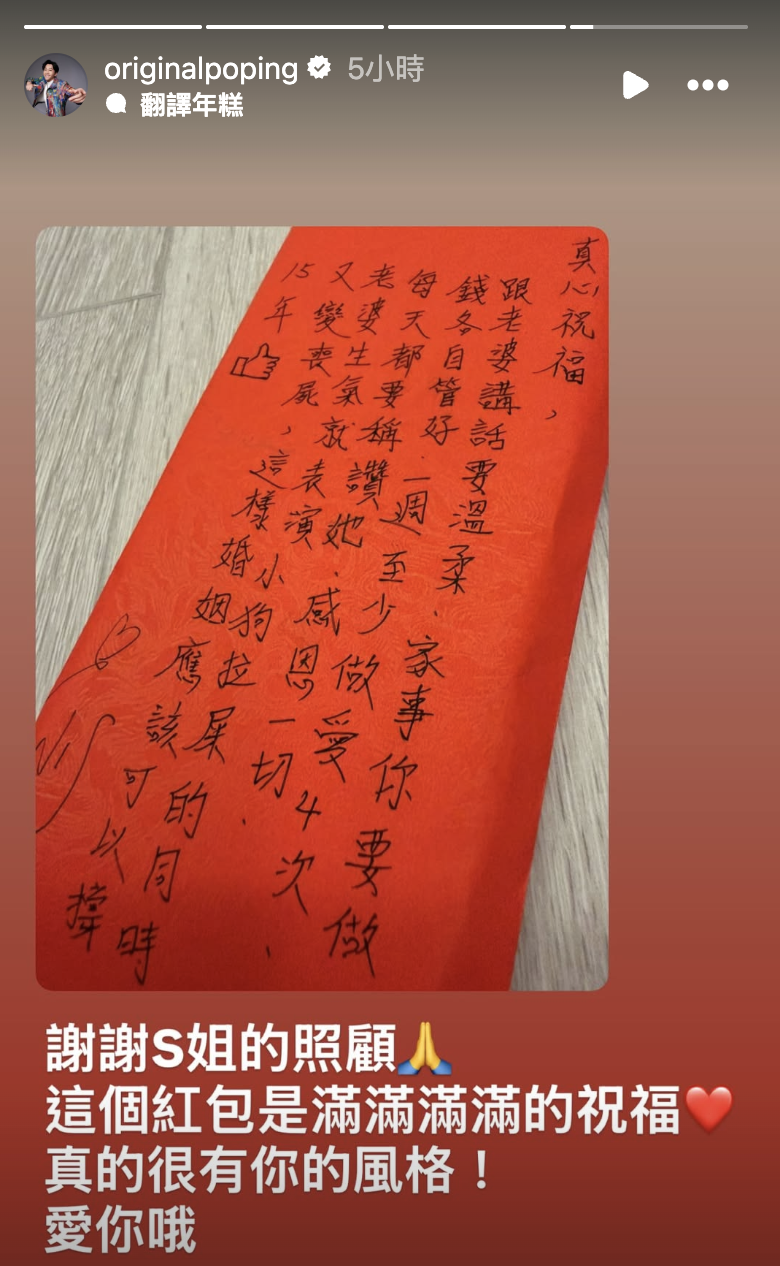 originalpoping 5小時
翻譯年糕
真心祝福,
跟老婆講話要溫柔.家事你要做
錢各自管好.一週至少做愛4次.
每天都要稱讚她.感恩一切.
老婆生氣就表演小狗拉屎的同時
又變喪屍,這樣婚姻應該可以撐
15年
謝謝S姐的照顧🙏
這個紅包是滿滿滿滿的祝福❤️
真的很有你的風格！
愛你哦